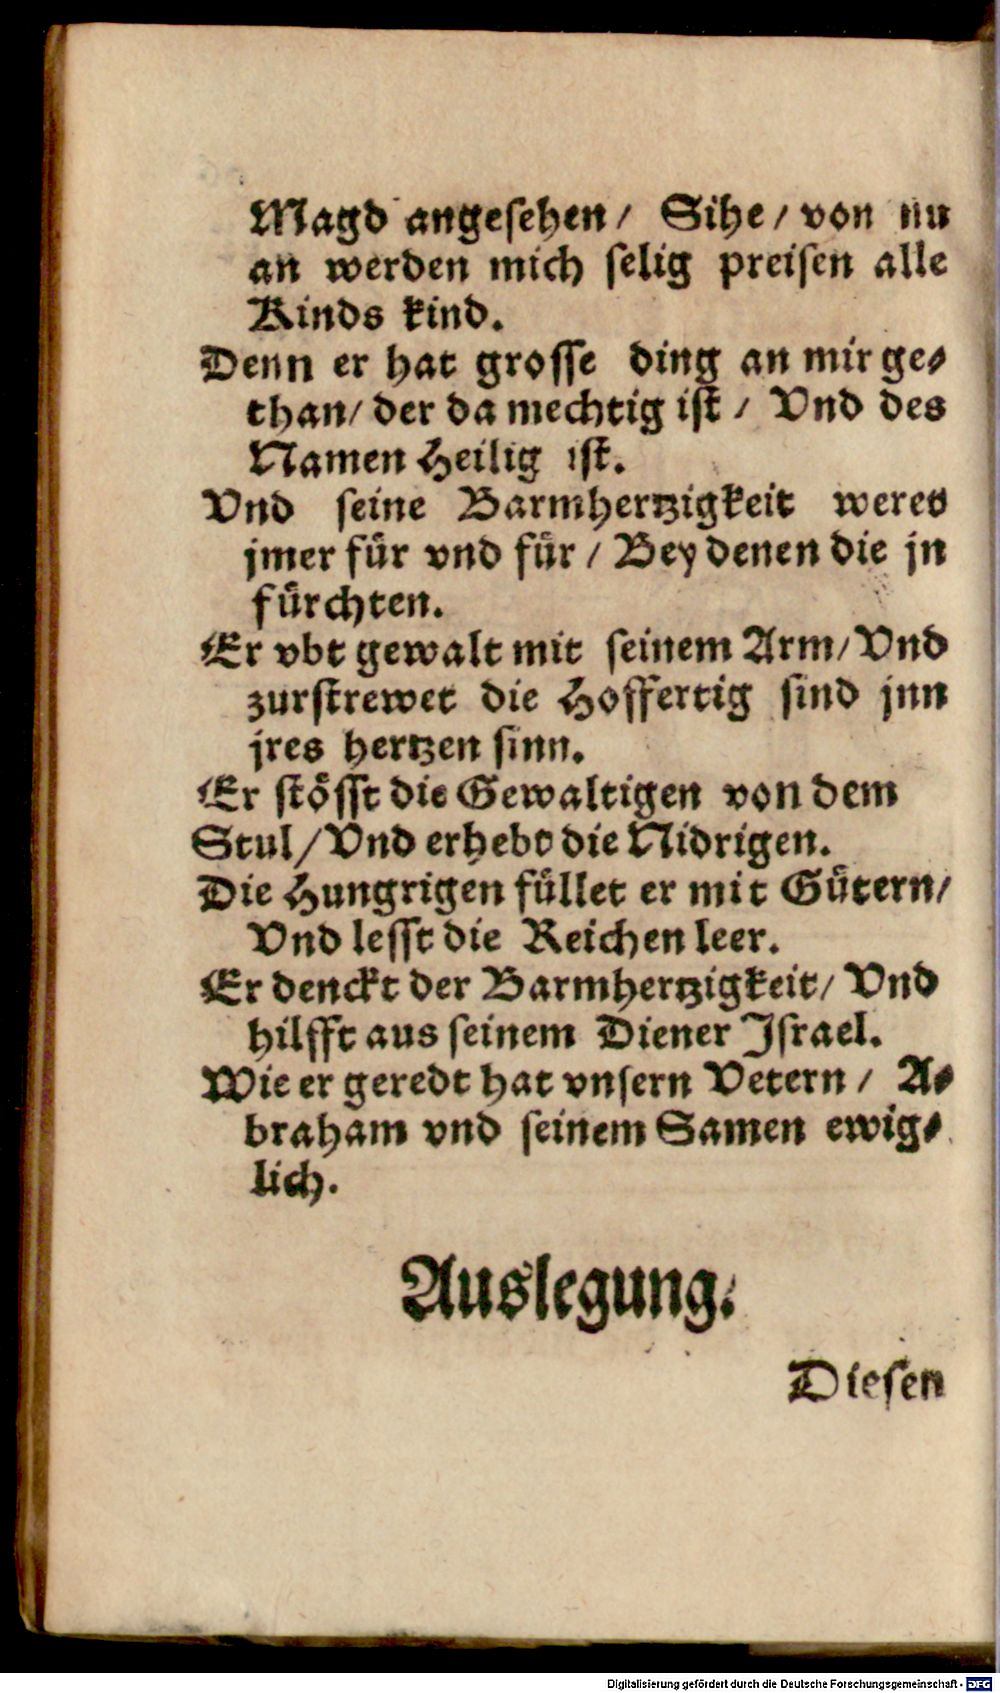 Magd angesehen/ Sihe/ von nu
an werden mich selig preisen alle
Kinds kind.
Denn er hat grosse ding an mir ge⸗
than/ der da mechtig ist/ Vnd des
Namen Heilig ist.
Vnd seine Barmhertzigkeit weret
jmer für vnd für/ Bey denen die jn
fürchten.
Er vbt gewalt mit seinem Arm/ Vnd
zurstrewet die Hoffertig sind jnn
jres hertzen sinn.
Er stösst die Gewaltigen von dem
Stul/ Vnd erhebt die Nidrigen.
Die Hungrigen füllet er mit Gütern/
Vnd lesst die Reichen leer.
Er denckt der Barmhertzigkeit/ Vnd
hilfft aus seinem Diener Israel.
Wie er geredt hat vnsern Vetern/ A⸗
braham vnd seinem Samen ewig⸗
lich.
Auslegung.
Diesen
Digitalisierung gefördert durch die Deutsche Forschungsgemeinschaft - DFG